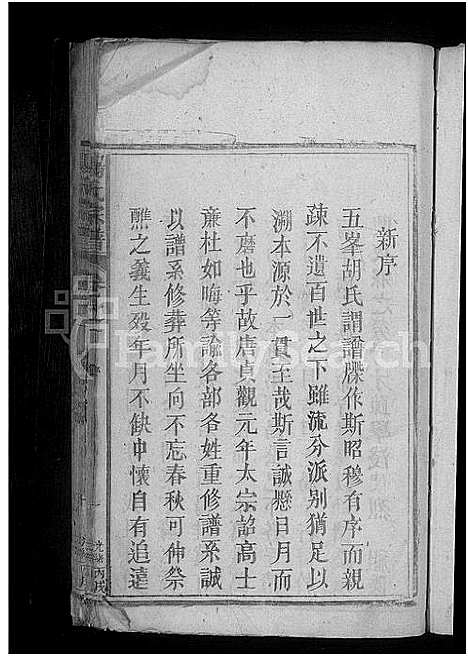 新序
五峯胡氏謂譜牒作斯昭穆有序而親
疎不遺百世之下雖流分派别猶足以
溯本源於一貫至哉斯言誠懸日月而
不磨也乎故唐貞觀元年太宗詔高士
亷杜如晦等諭各部各姓重修譜系誠
以譜系修葬所坐向不忘春秋可伸祭
醮之義生殁年月不缺中懷自有追遠
FamilySearch